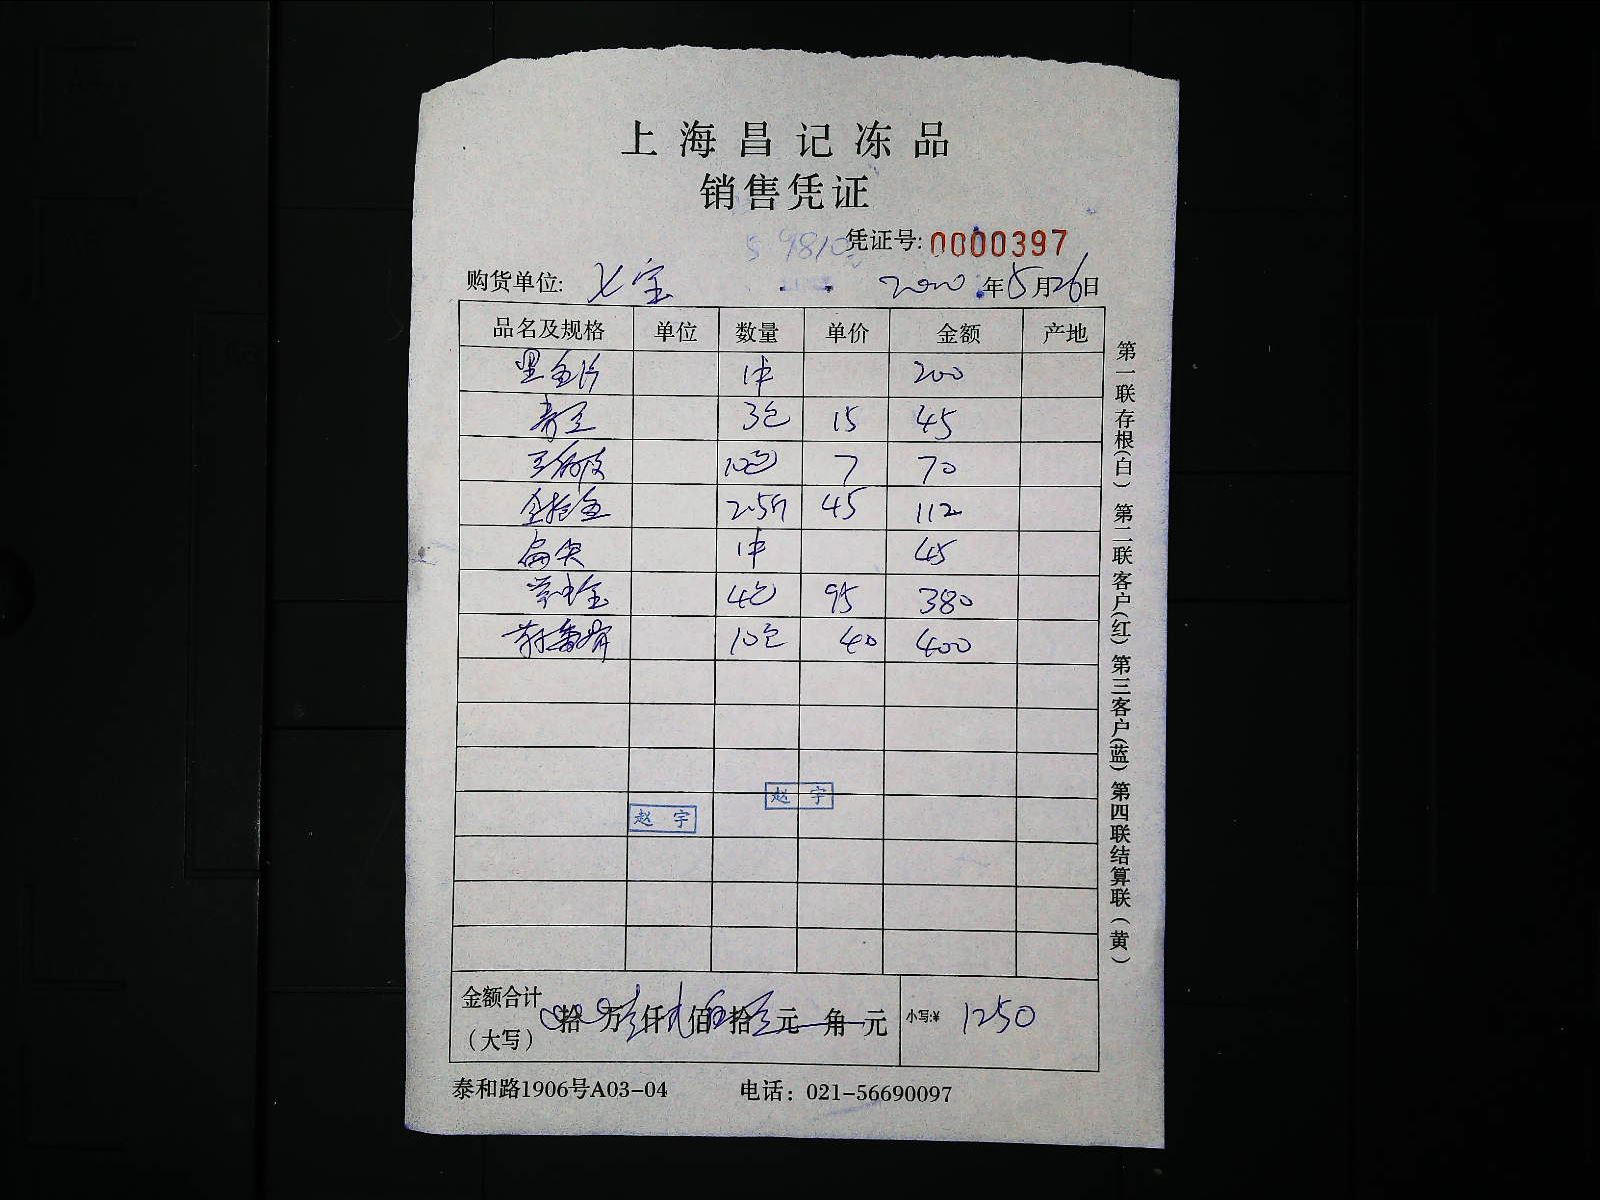 上海昌记冻品
销售凭证
凭证号: 0000397
购货单位: 七宝 2020年5月26日
品名及规格 单位 数量 单价 金额 产地
黑鱼片 1件 200
青豆 3包 15 45
10包 7 70
2.5斤 45 112
扁尖 1件 45
4包 95 380
10包 40 400
赵宇
赵宇
金额合计(大写) 拾万壹仟贰佰伍拾元角元 小写:¥ 1250
泰和路1906号A03-04 电话: 021-56690097
第一联存根(白) 第二联客户(红) 第三客户(蓝) 第四联结算联(黄)